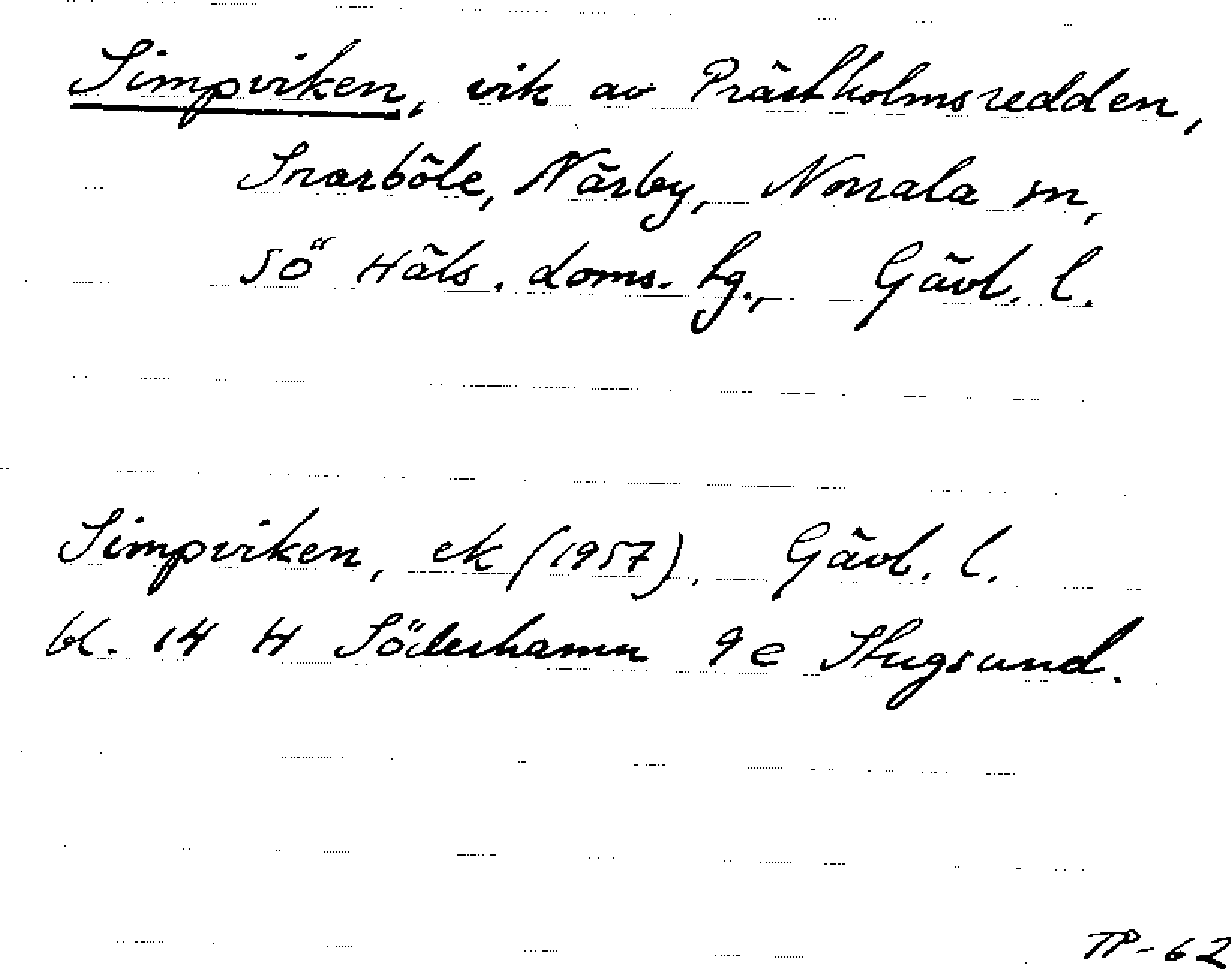 Simpviken, vik av Prästholmsredden,
Snarböle, Närby, Norrala sn,
Sö Häls. doms. hg., Gävl. l.
Simpviken, ek (1957). Gävl. l.
bl. 14 H Söderhamn 9 e Stugsund.
TP-62